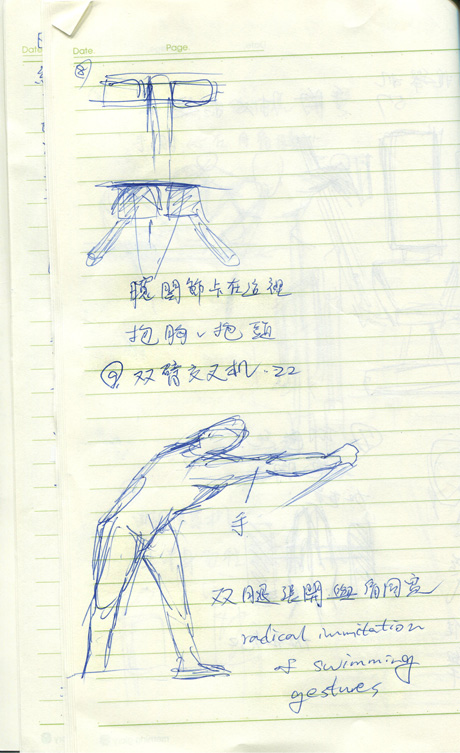 Date Date Page
⑧
関節卡在这裡
抱胸、抱頭
⑨ 双臂交叉机.22
手
双腿張開與肩同宽
radical immitation
of swimming
gestures